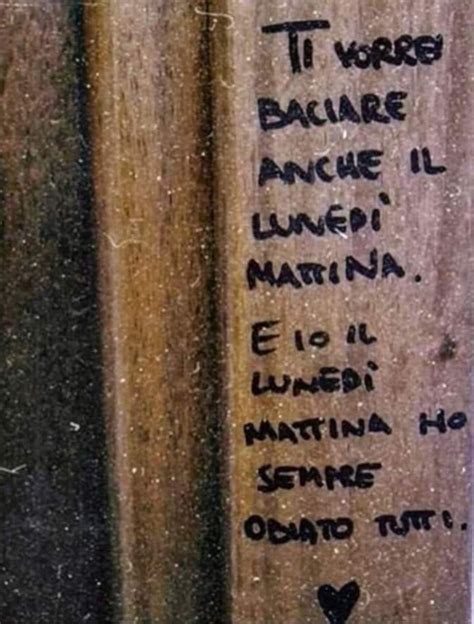 TI VORREI
BACIARE
ANCHE IL
LUNEDÌ
MATTINA.
E IO IL
LUNEDÌ
MATTINA HO
SEMPRE
ODIATO TUTTI.